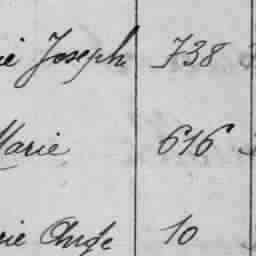 ie Joseph 738
Marie 616
rie Ange 10